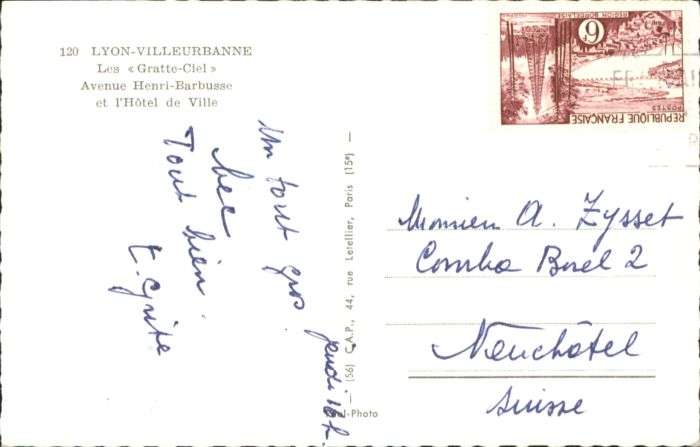 120 LYON-VILLEURBANNE
Les « Gratte-Ciel »
Avenue Henri-Barbusse
et l'Hôtel de Ville
Un tout gros
bec
Tout bien.
jeudi
(56) C.A.P., 44, rue Letellier, Paris (15e) —
-Photo
6F
RÉGION BORDELAISE
POSTES
RÉPUBLIQUE FRANÇAISE
Monsieur A. Zysset
Comba Borel 2
Neuchâtel
Suisse